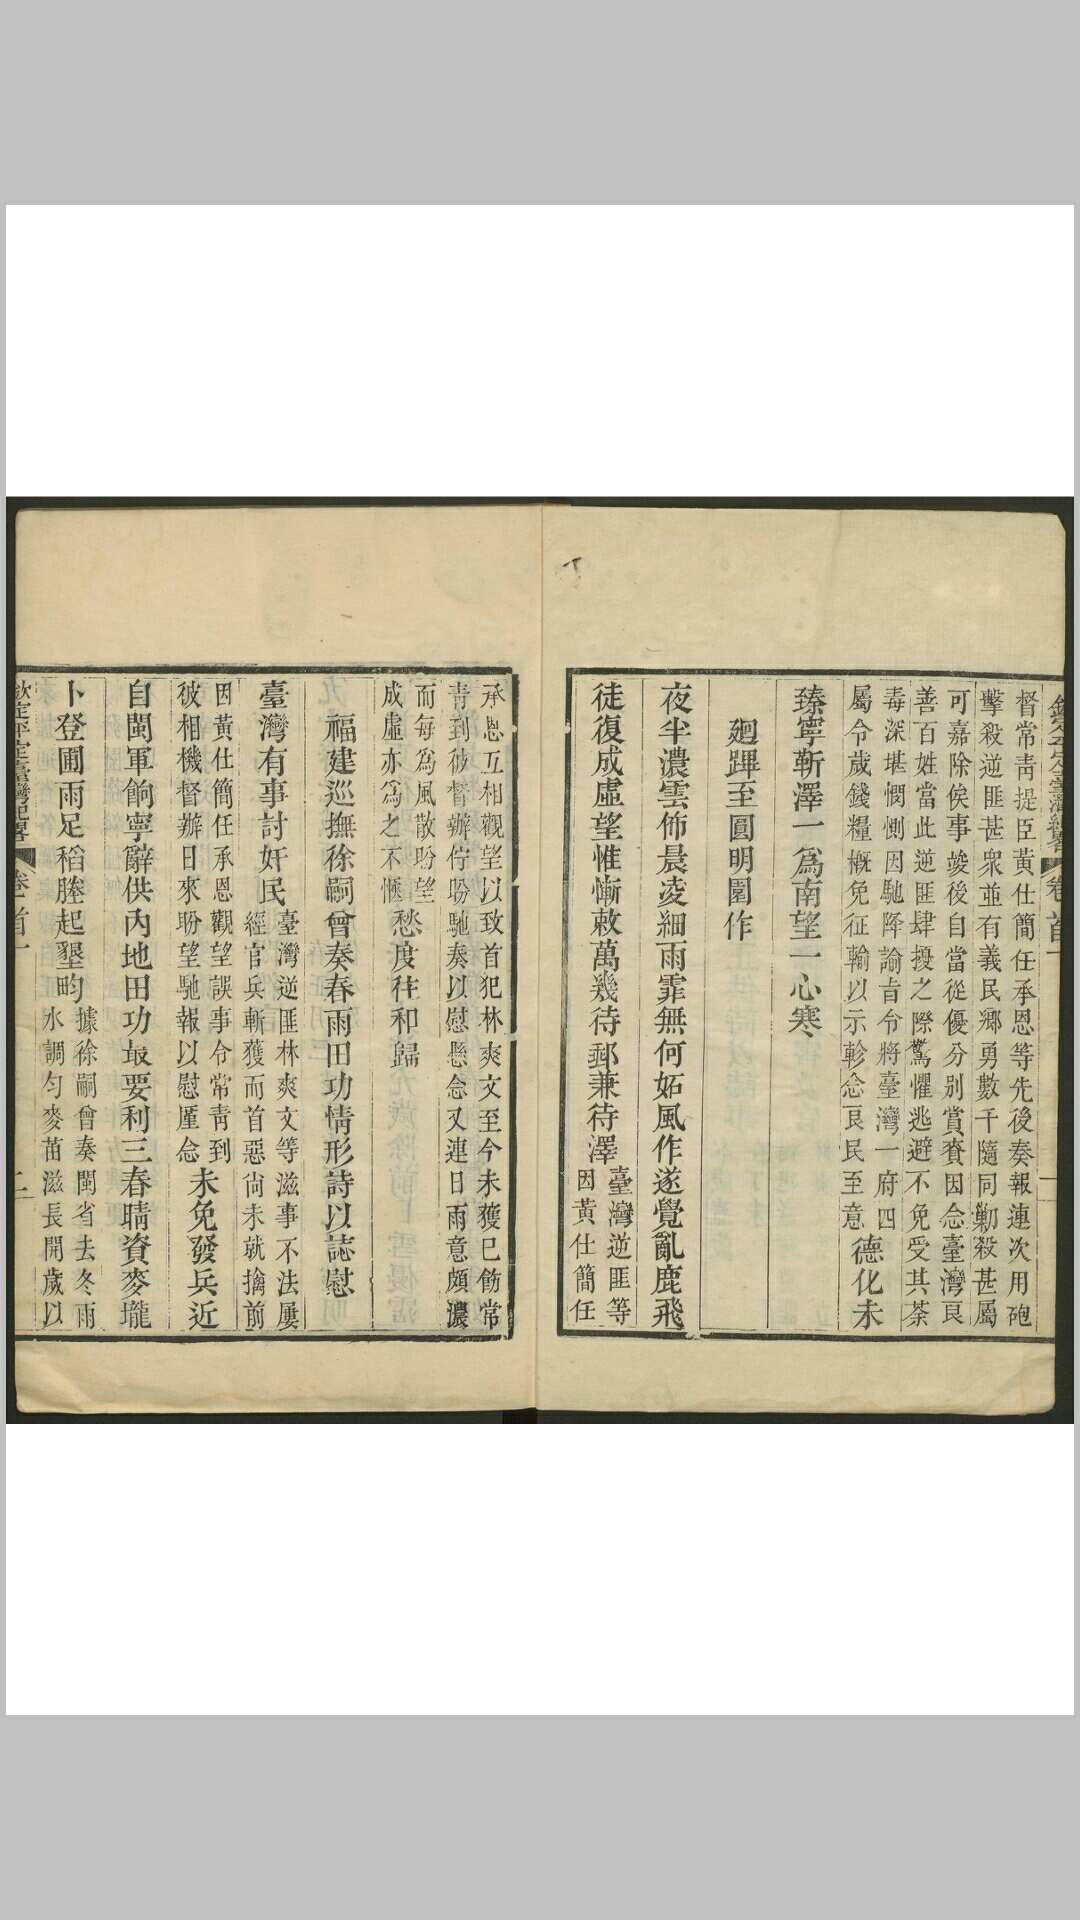 欽定平定臺灣紀畧 卷首一
督常靑提臣黃仕簡任承恩等先後奏報連次用砲
擊殺逆匪甚衆並有義民鄉勇數千隨同勦殺甚屬
可嘉除俟事竣後自當從優分別賞賚因念臺灣良
善百姓當此逆匪肆擾之際驚懼逃避不免受其荼
毒深堪憫惻因馳降諭旨令將臺灣一府四
屬今歲錢糧槪免征輸以示軫念良民至意德化未
臻寧蘄澤一爲南望一心寒
廻蹕至圓明園作
夜半濃雲佈晨凌細雨霏無何妬風作遂覺亂鹿飛
徒復成虛望惟慚敕萬幾待郵兼待澤
臺灣逆匪等
因黃仕簡任
承恩互相觀望以致首犯林爽文至今未獲已飭常
靑到彼督辦佇盼馳奏以慰懸念又連日雨意頗濃
而每爲風散盼望
成虛亦爲之不愜愁度往和歸
福建巡撫徐嗣曾奏春雨田功情形詩以誌慰
臺灣有事討奸民
臺灣逆匪林爽文等滋事不法屢
經官兵斬獲而首惡尙未就擒前
因黃仕簡任承恩觀望誤事令常靑到
彼相機督辦日來盼望馳報以慰厪念未免發兵近
自閩軍餉寧辭供內地田功最要利三春晴資麥壠
卜登圃雨足稻塍起墾畇
據徐嗣曾奏閩省去冬雨
水調勻麥苗滋長開歲以
欽定平定臺灣紀畧 卷首一 二